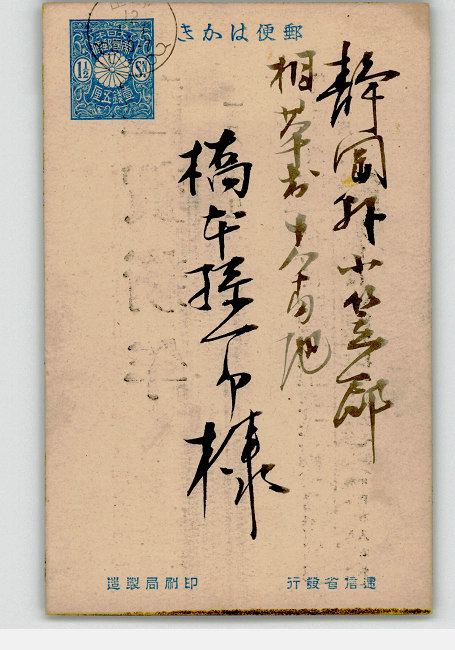 郵便はかき
大日本帝國郵便
1½ Sn.
壹錢五厘
12
静岡縣小笠郡
相草村十八番地
橋本孫一郎様
遞信省發行
印刷局製造